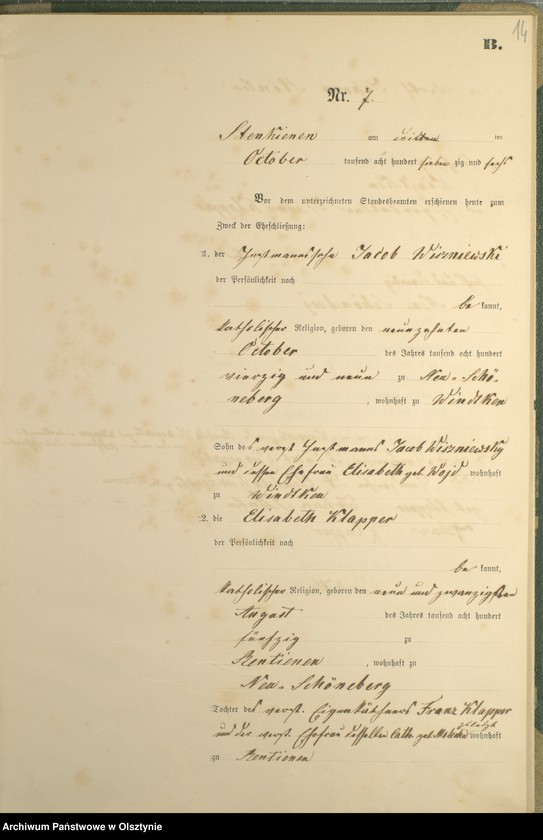 14
B.
Nr. 7.
Stenkienen am dritten
October tausend acht hundert sieben zig und sechs
Vor dem unterzeichneten Standesbeamten erschienen heute zum
Zweck der Eheschließung:
1. der Instmannssohn Jacob Wiszniewski
der Persönlichkeit nach
be kannt,
katholischer Religion, geboren den neunzehnten
October des Jahres tausend acht hundert
vierzig und neun zu Neu-Schö-
neberg, wohnhaft zu Windtken
Sohn des verst. Instmanns Jacob Wiszniewsky
und dessen Ehefrau Elisabeth geb. Wojd wohnhaft
zu Windtken
2. die Elisabeth Klapper
der Persönlichkeit nach
be kannt,
katholischer Religion, geboren den neun und zwanzigsten
August des Jahres tausend acht hundert
fünfzig zu
Rentienen, wohnhaft zu
Neu-Schöneberg
Tochter des verst. Eigenkäthners Franz Klapper
zuletzt
und der verst. Ehefrau desselben Cath. geb. wohnhaft
zu Rentienen
Archiwum Państwowe w Olsztynie